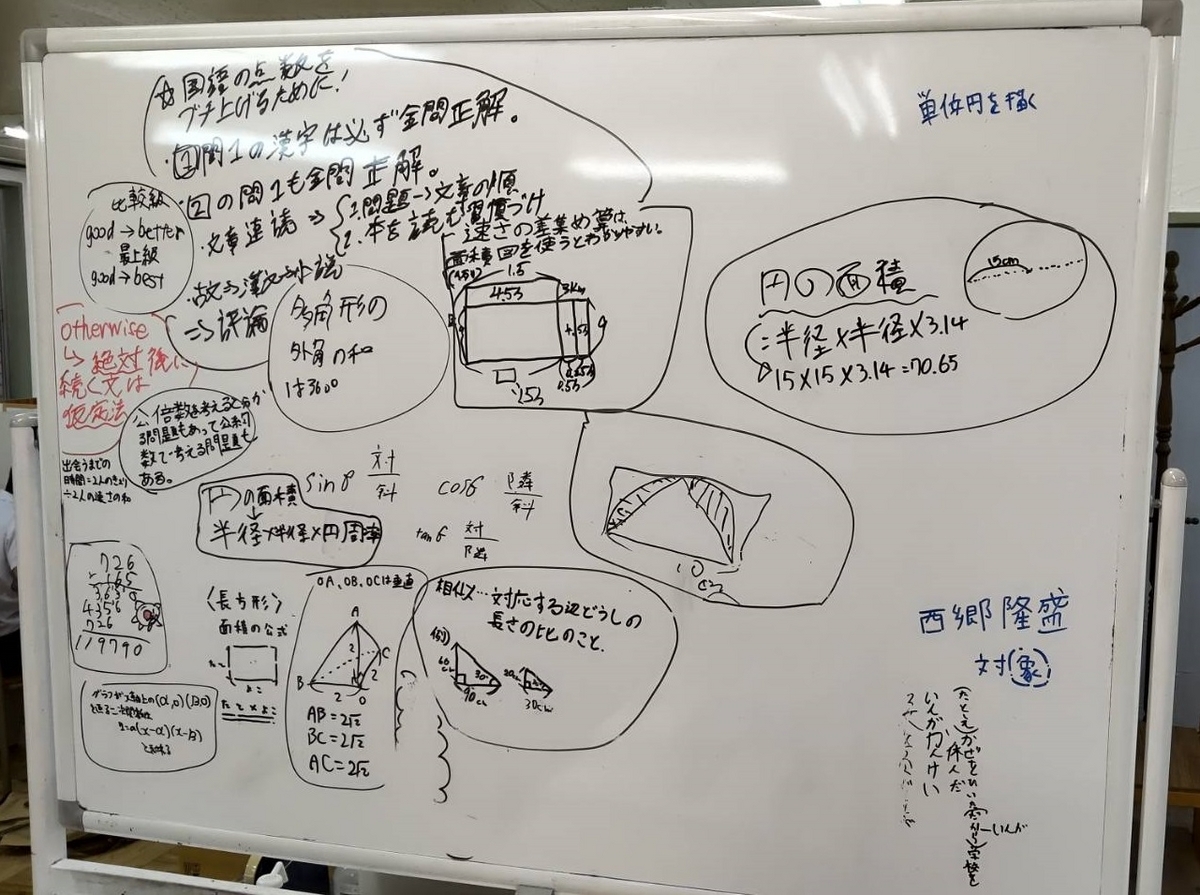 ☆国語の点数を
ブチ上げるために!
・1問1の漢字は必ず全問正解。
・2の問1も全問正解。
・文章連読⇒{1.問題→文章の順
2.本を読む習慣づけ
⇒評論
単位円を描く
比較級
good→better
最上級
good→best
otherwise
↳絶対後に
続く文は
仮定法
多角形の
外角の和
は360°
速さの差集め算は、
面積図を使うとわかりやすい。
1.5
453
3km
円の面積
15cm
:半径×半径×3.14
15×15×3.14=70.65
公倍数を考えると分か
る問題もあって公約
数で考える問題も
ある。
出会うまでの
時間=2人のきょり
÷2人の速さの和
円の面積
↓
半径×半径×円周率
sinθ 対/斜
cosθ 隣/斜
tanθ 対/隣
10
cm
726
165
3630
4356
726
119790
(長方形)
面積の公式
たて
よこ
たて×よこ
OA、OB、OCは垂直
A
B
C
O
2
2
2
AB=2√2
BC=2√2
AC=2√2
相似…対応する辺どうしの
長さの比のこと.
(例)
60cm
30°
90cm
20cm
30cm
グラフがx軸上の(α,0)(β,0)
を通る二次関数は
y=a(x-α)(x-β)
と表せる
西郷隆盛
対(象)
(たとえ)かぜをひいた(だから)学校を
休んだ
ーいんが
いんがかんけい